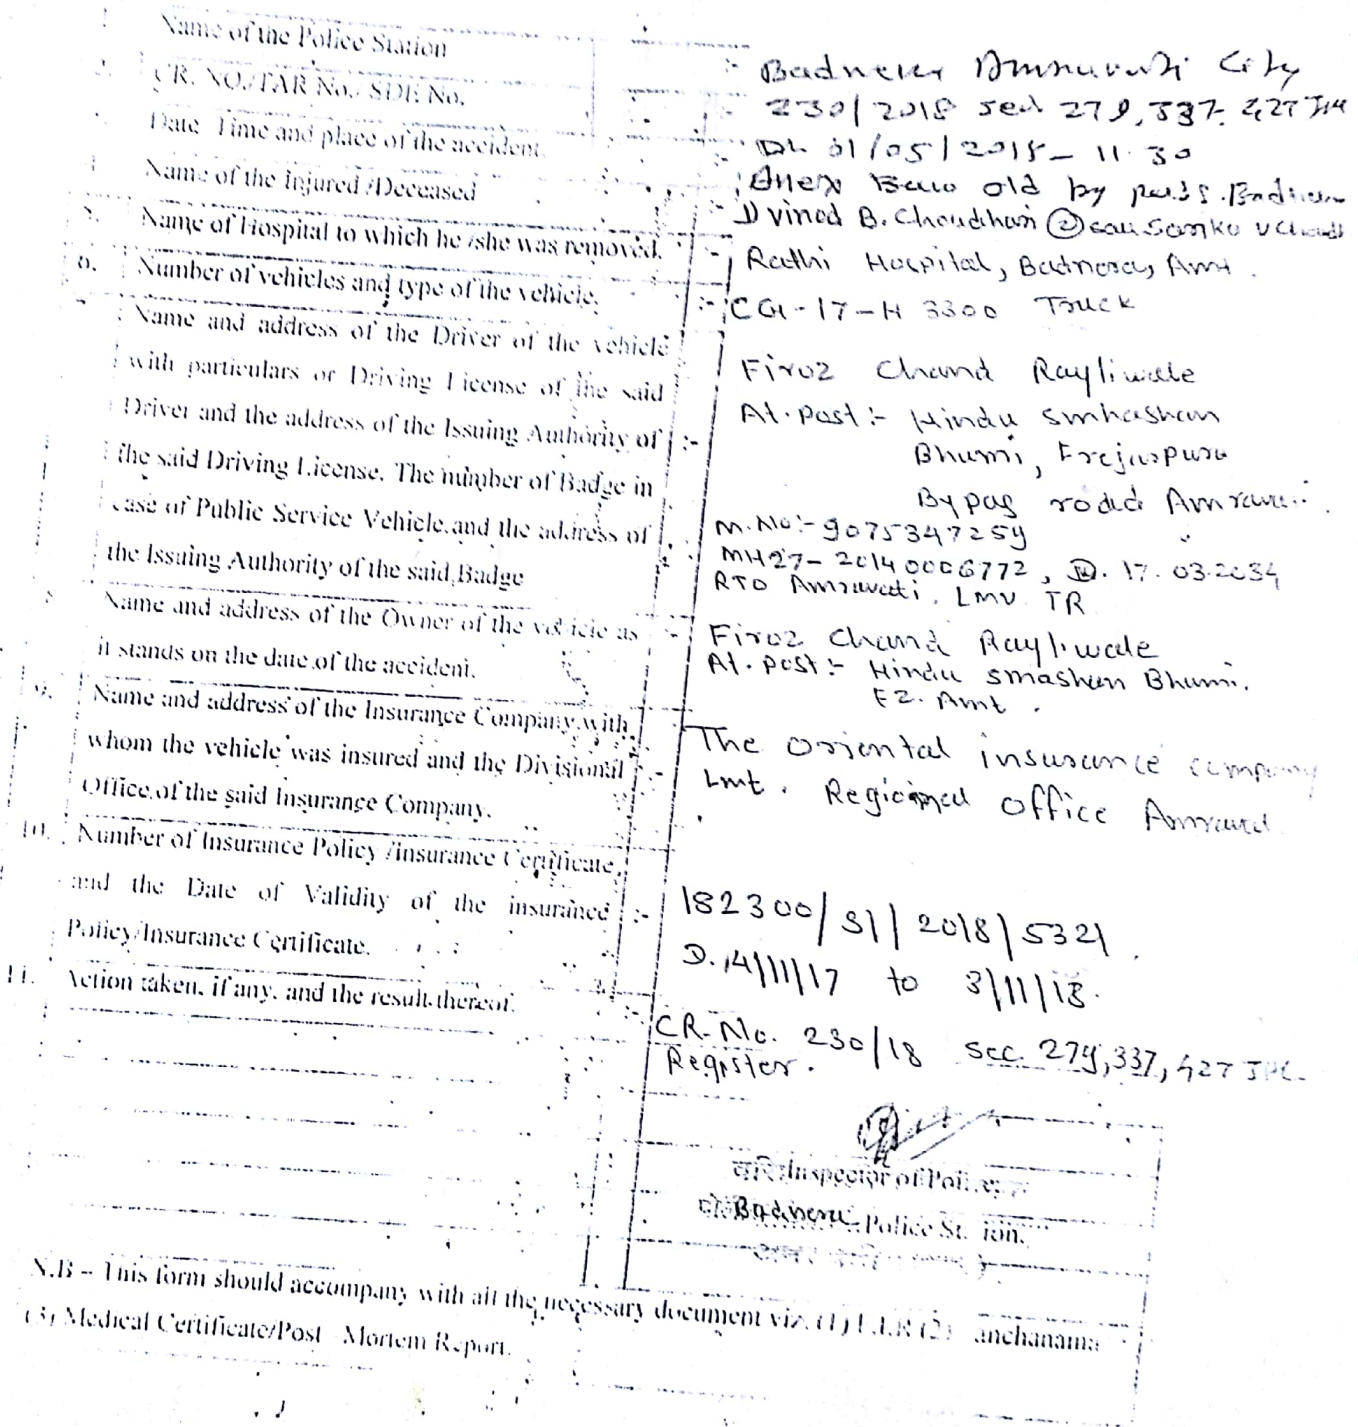 Name of the Police Station
:- Badnera Amravati City
CR. NO./TAR No./ SDE No.
230/2018 sec 279, 337, 427 IPC
Date Time and place of the accident.
Dt. 01/05/2018 - 11.30
old by
Name of the Injured /Deceased
:- 1) vinod B. Choudhari 2)
5. Name of Hospital to which he /she was removed.
:- Rathi Hospital, Badnera, Amt.
6. Number of vehicles and type of the vehicle.
:- CG-17-H 3300 Truck
Name and address of the Driver of the vehicle
with particulars or Driving License of the said
Driver and the address of the Issuing Authority of :-
the said Driving License. The number of Badge in
case of Public Service Vehicle and the address of
the Issuing Authority of the said Badge
Firoz Chand Rayliwale
At. post :- Hindu Smhashan
Bhumi, Frejarpura
Bypas roda Amravati.
M. No :- 9075347259
MH27- 20140006772, D. 17.03.2034
RTO Amravati. LMV TR
Name and address of the Owner of the vehicle as :-
it stands on the date of the accident.
Firoz Chand Rayliwale
At. post :- Hindu smashan Bhumi.
FZ. Amt.
9. Name and address of the Insurance Company with
whom the vehicle was insured and the Divisional :-
Office of the said Insurance Company.
The oriental insurance company
Lmt. Regional office Amravati
10. Number of Insurance Policy /insurance Certificate
and the Date of Validity of the insurance :-
Policy/Insurance Certificate.
182300/31/2018/5321.
D. 14/11/17 to 3/11/18.
11. Action taken, if any, and the result thereof.
:- CR. No. 230/18 sec. 279, 337, 427 IPC.
Register.
Inspector of Police,
Badnera Police Station.
N.B – This form should accompany with all the necessary document viz. (1) F.I.R (2) anchanama
(3) Medical Certificate/Post Mortem Report.